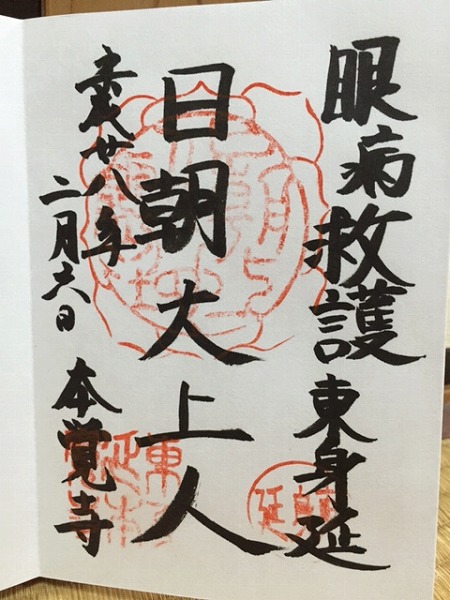 眼病救護 東身延
日朝大上人
平成廿八年
二月六日
本覚寺